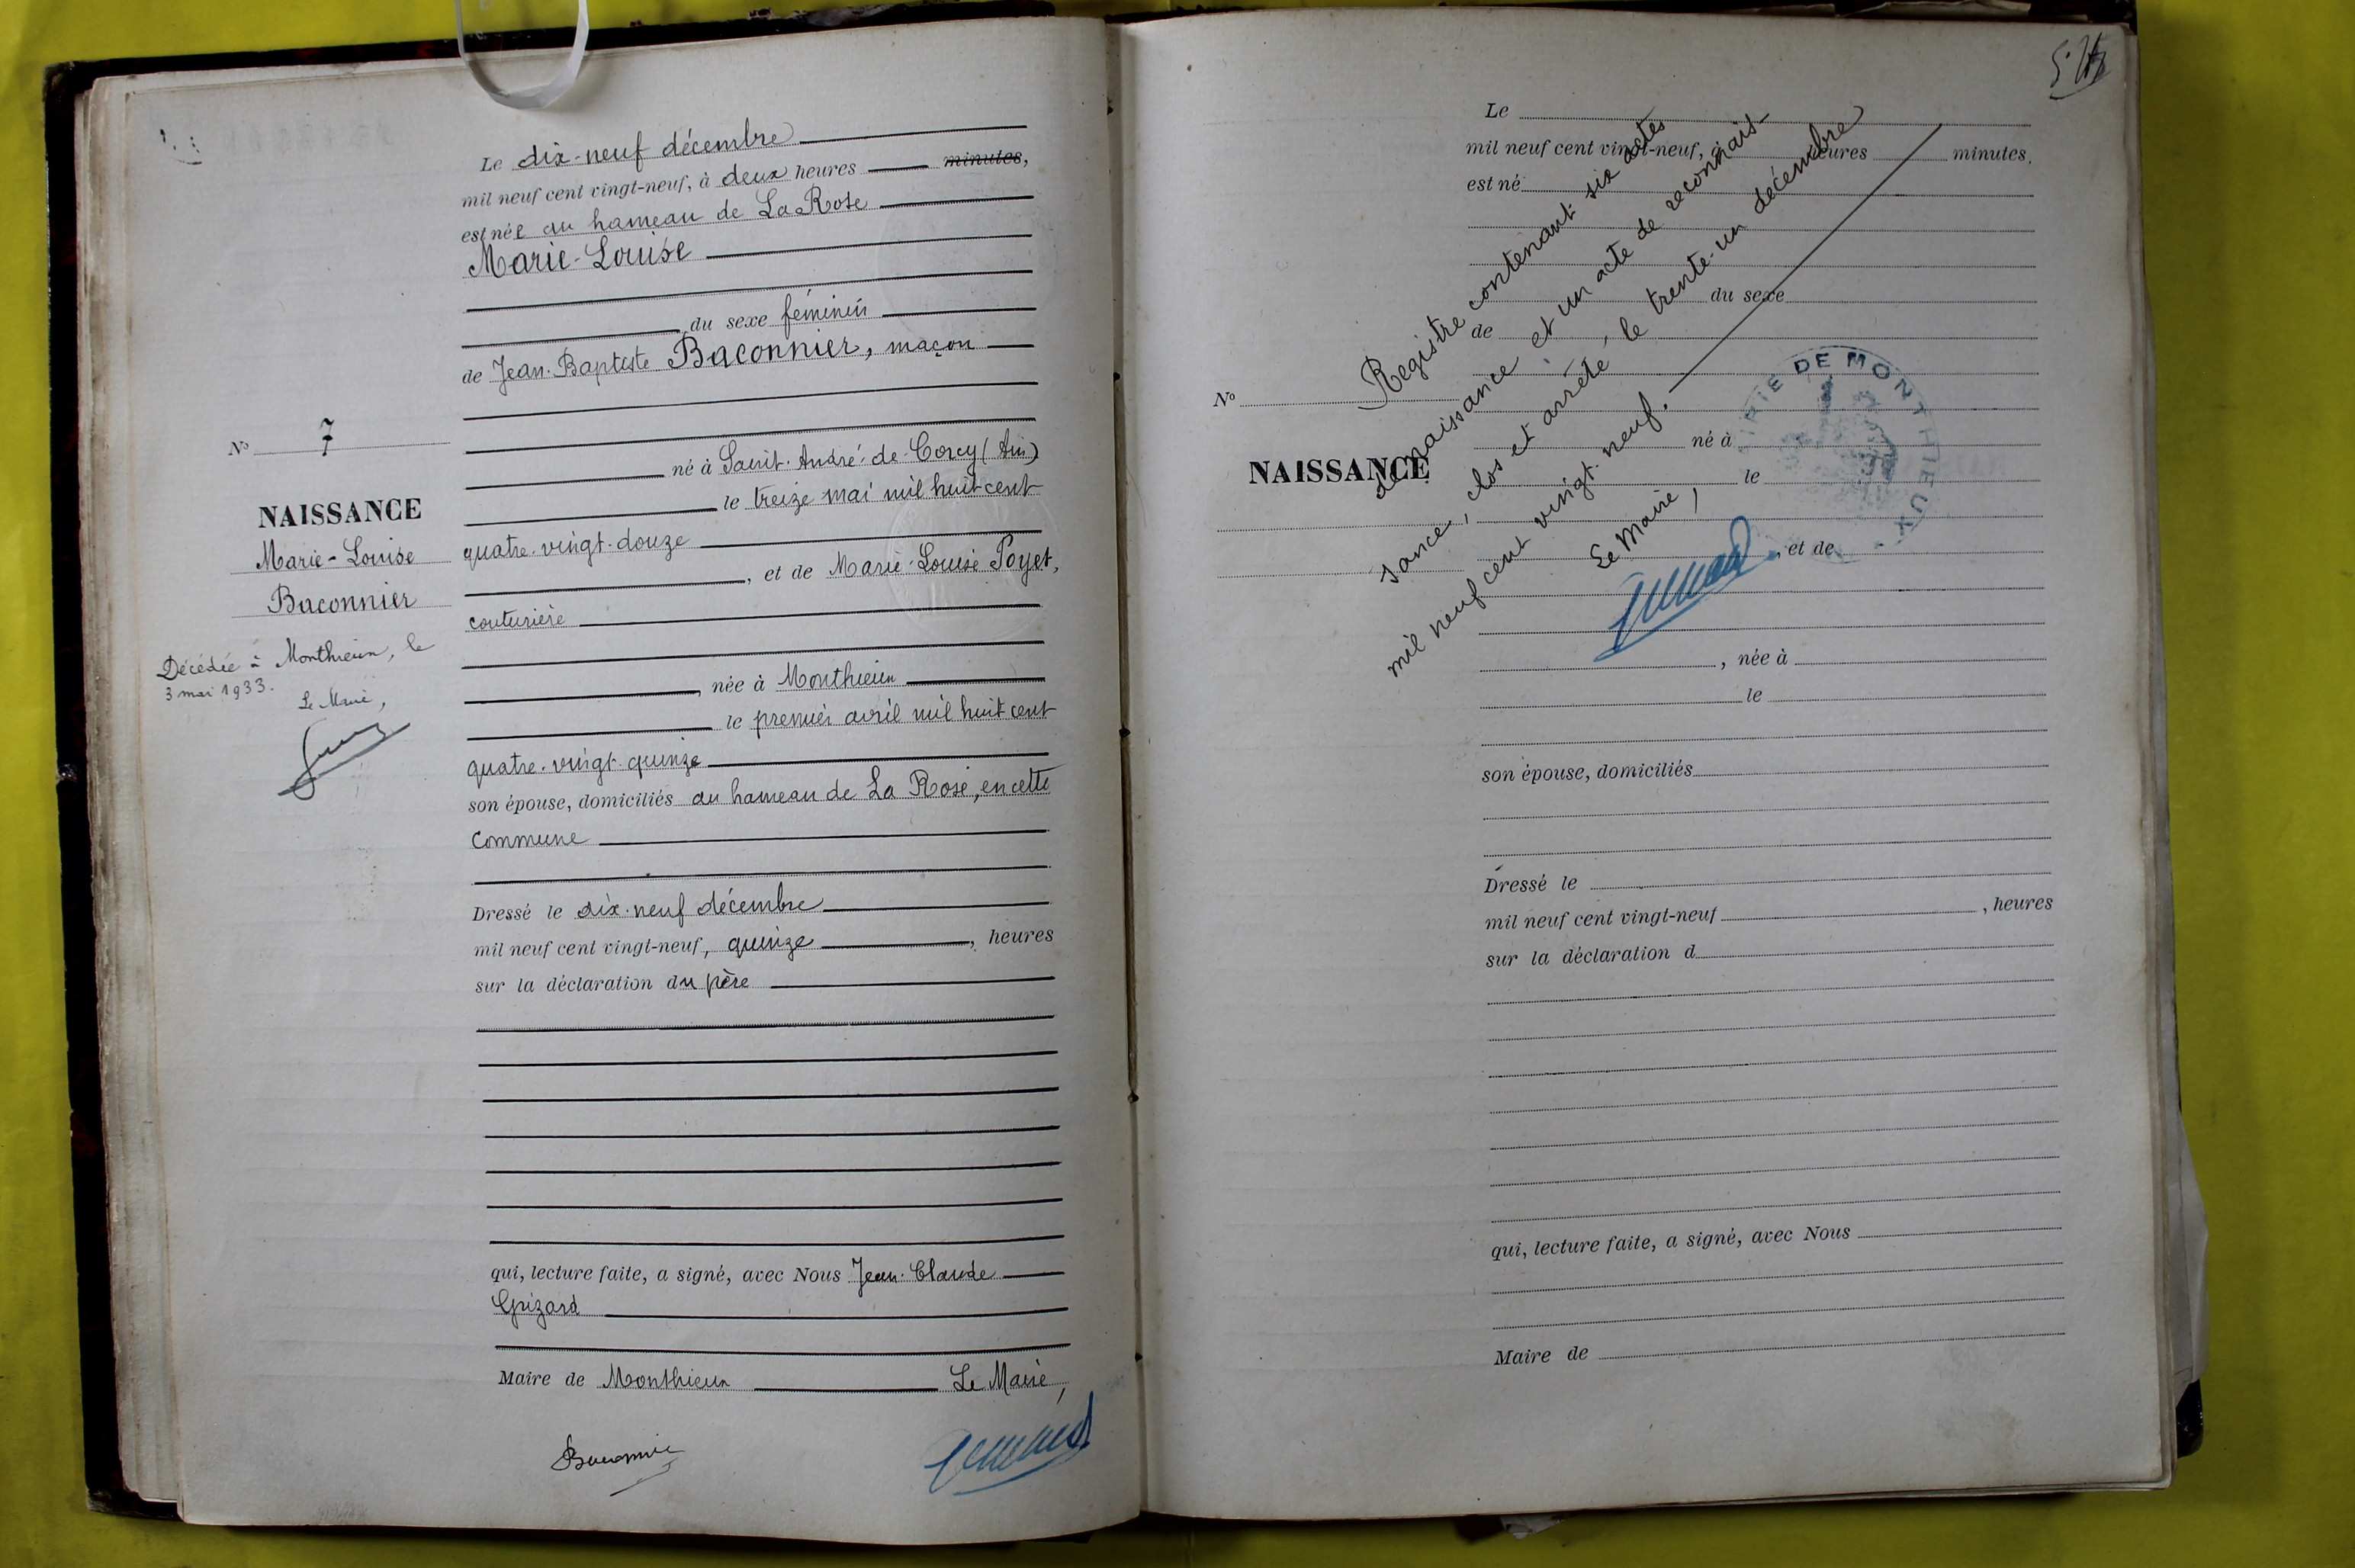 Le dix-neuf décembre
mil neuf cent vingt-neuf, à deux heures minutes,
est née au hameau de La Rose
Marie-Louise
du sexe féminin
de Jean-Baptiste Baconnier, maçon
né à Saint-André-de-Corcy (Ain)
le treize mai mil huit cent
quatre-vingt-douze
, et de Marie-Louise Poyet,
couturière
, née à Monthieux
le premier avril mil huit cent
quatre-vingt-quinze
son épouse, domiciliés au hameau de La Rose, en cette
commune
Dressé le dix-neuf décembre
mil neuf cent vingt-neuf, quinze , heures
sur la déclaration du père
qui, lecture faite, a signé, avec Nous Jean-Claude
Grizard
Maire de Monthieux Le Maire,
No 7
NAISSANCE
Marie-Louise
Baconnier
Décédée à Monthieux, le
3 mai 1933.
Le Maire,
Le
mil neuf cent vingt-neuf, à heures minutes,
est né
du sexe
de
No
NAISSANCE
né à
le
, et de
, née à
le
son épouse, domiciliés
Dressé le
mil neuf cent vingt-neuf , heures
sur la déclaration d
qui, lecture faite, a signé, avec Nous
Maire de
Registre contenant six actes
de naissance et un acte de reconnais-
sance, clos et arrêté le trente-un décembre
mil neuf cent vingt-neuf.
Le Maire,
MAIRIE DE MONTHIEUX